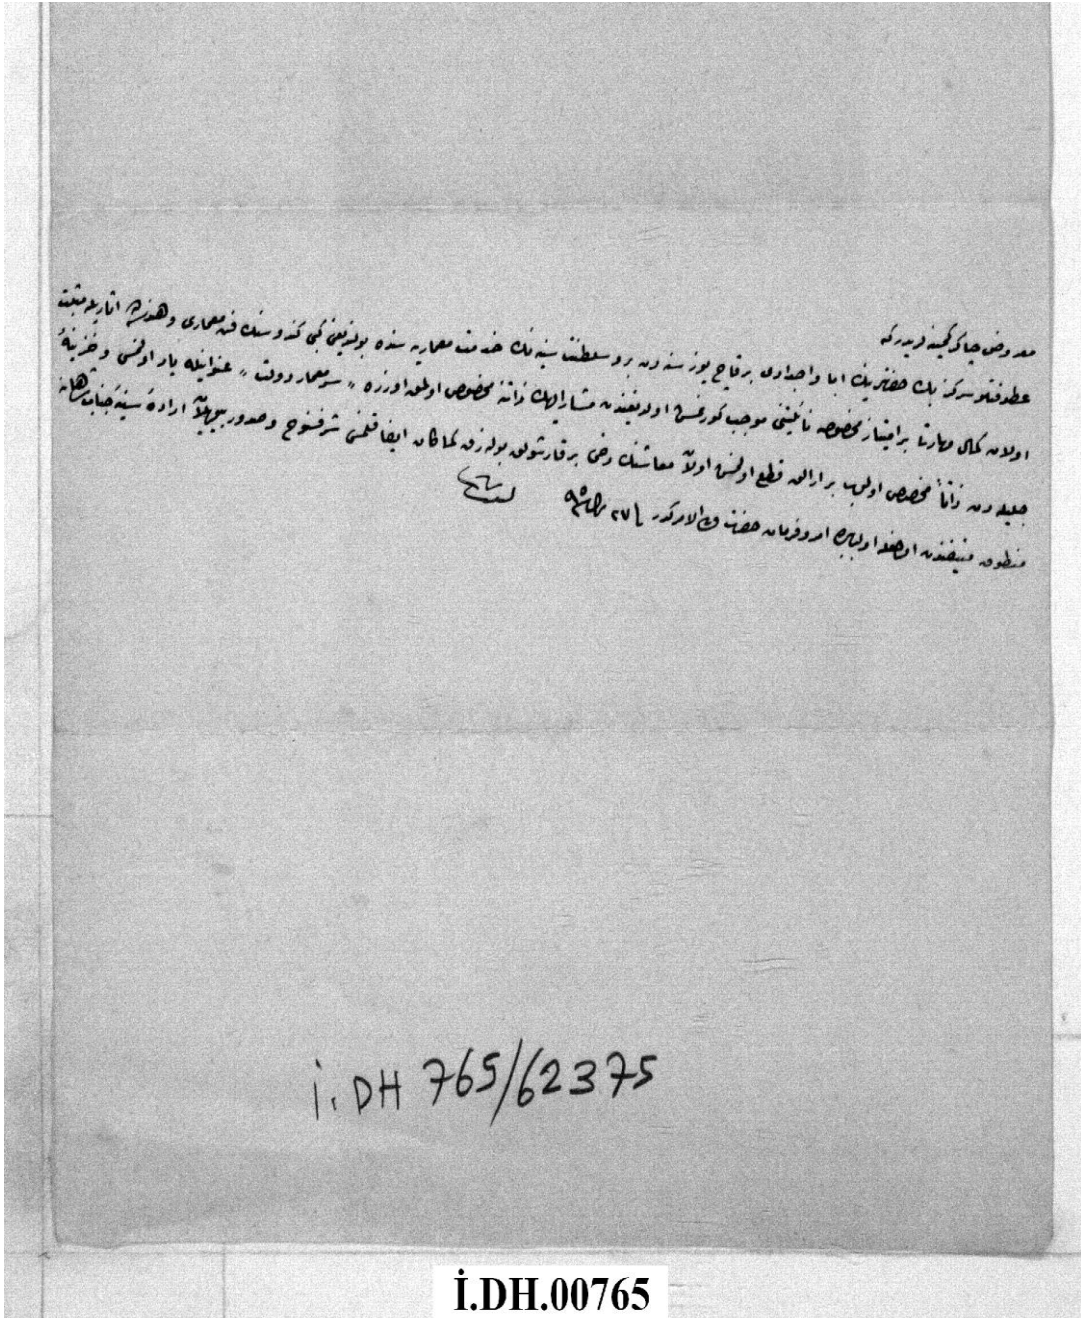 معروض چاكر كمينه لريدر كه
عطوفتلو سركز بك حضرتلرينك ابا واجدادى بر قاچ يوز سنه دن برو سلطنت سنيه نك خدمت معماريه سنده بولنديغى كبى كندوسنك فن معمارى و هنرجه اثاريله مثبت
اولان كمال مهارتى بر امتياز مخصوصه نائليتنى موجب كورنمش اولديغندن مشاراليهك ذاتنه مخصوص اولمق اوزره « سر معمار دولت » عنوانيله ياد اولنمسى و خزينهٔ
جليله دن ذاتاً مخصوص اولوب بر ارالق قطع اولنمش اولان معاشنك دخى بر قرارشولى بوله رق كماكان ايفا قلنمسى شرفسنوح و صدور بيوريلان ارادهٔ سنيهٔ جناب شاهانه
منطوق منيفندن اولمغله اولبابده امر و فرمان حضرت ولى الامركدر فى ٢٧ ٩٥
İ. DH 765/62375
İ.DH.00765